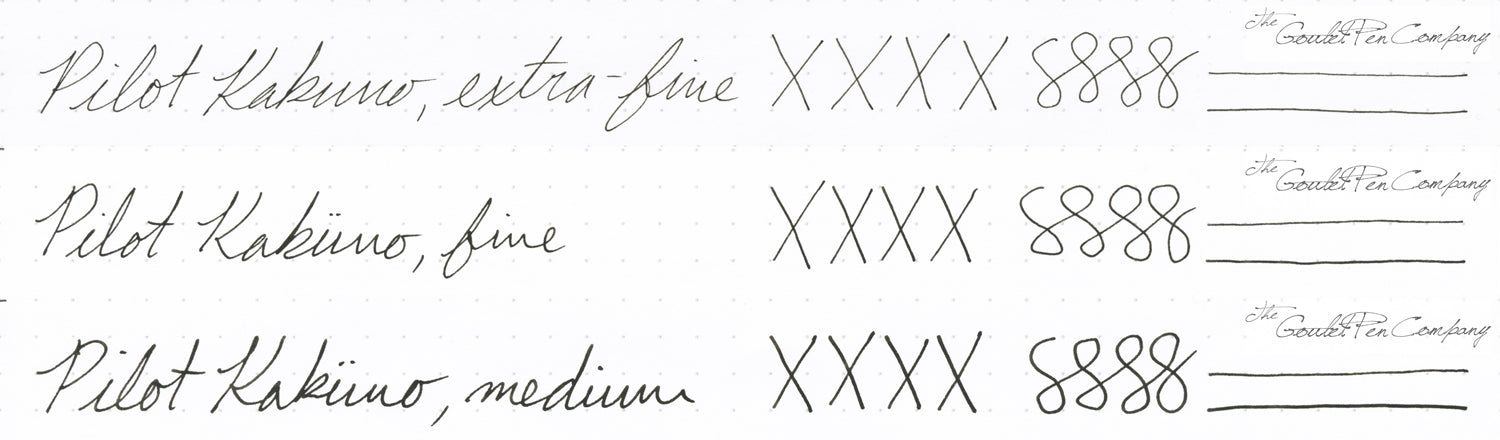 Pilot Kakuno, extra-fine XXXX 8888
The Goulet Pen Company
Pilot Kaküno, fine XXXX 8888
The Goulet Pen Company
Pilot Kaküno, medium XXXX 8888
The Goulet Pen Company